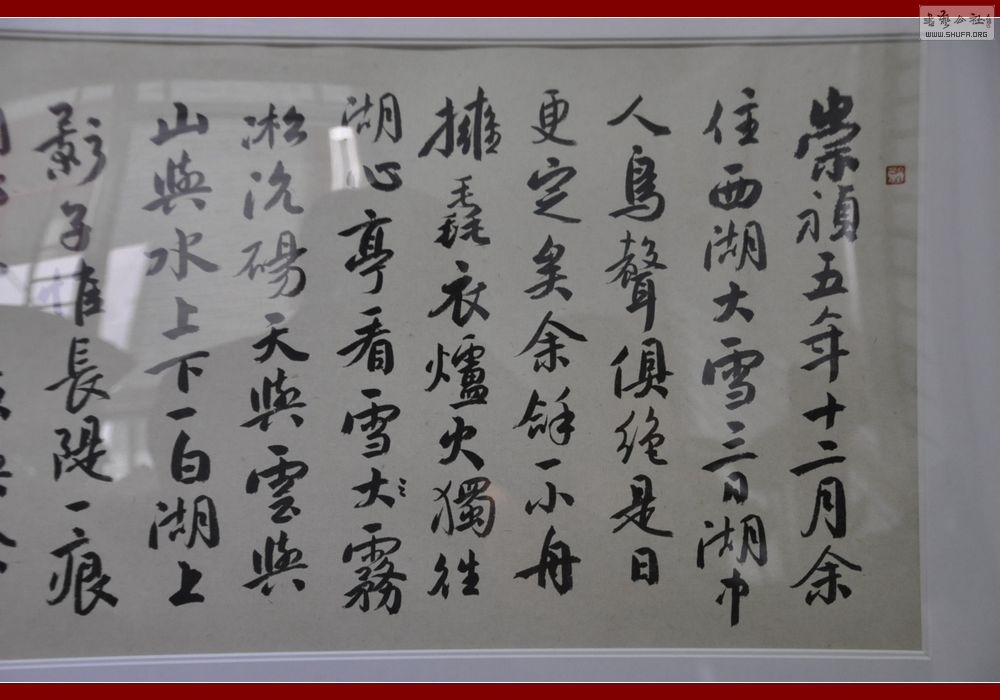 崇禎五年十二月余
住西湖大雪三日湖中
人鳥聲俱絕是日
更定矣余
一小舟
擁毳衣爐火獨往
湖心亭看雪大霧
凇沆碭天與雲與
山與水上下一白湖上
影子惟長隄一痕
WWW.SHUFA.ORG